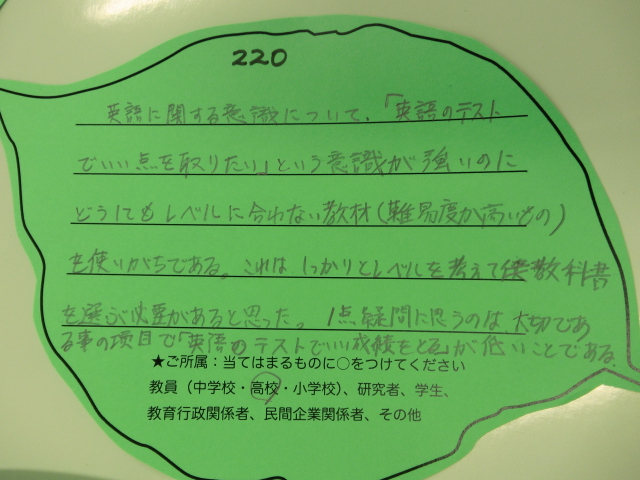 220
英語に関する意識について、「英語のテスト
でいい点を取りたい」という意識が強いのに
どうしてもレベルに合わない教材(難易度が高いもの)
を使いがちである。これはしっかりとレベルを考えて教科書
を選ぶ必要があると思った。1点疑問に思うのは、大切であ
る事の項目で「英語のテストでいい成績をとる」が低いことである
★ご所属:当てはまるものに○をつけてください
教員(中学校・高校・小学校)、研究者、学生、
教育行政関係者、民間企業関係者、その他